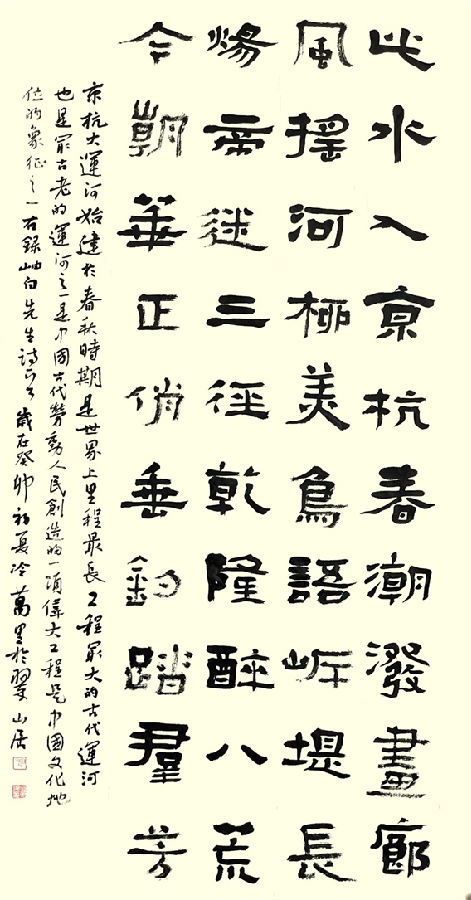 此水入京杭春潮潑畫廊
風搖河柳美鳥語岸堤長
煬帝迷三徑乾隆醉八荒
今朝華正俏垂釣踏羣芳
京杭大運河始建於春秋時期是世界上里程最長工程最大的古代運河
也是最古老的運河之一是中國古代勞動人民創造的一項偉大工程是中國文化地
位的象征之一右錄岫白先生詩一首歲在癸卯初夏冷萬里於翠山居